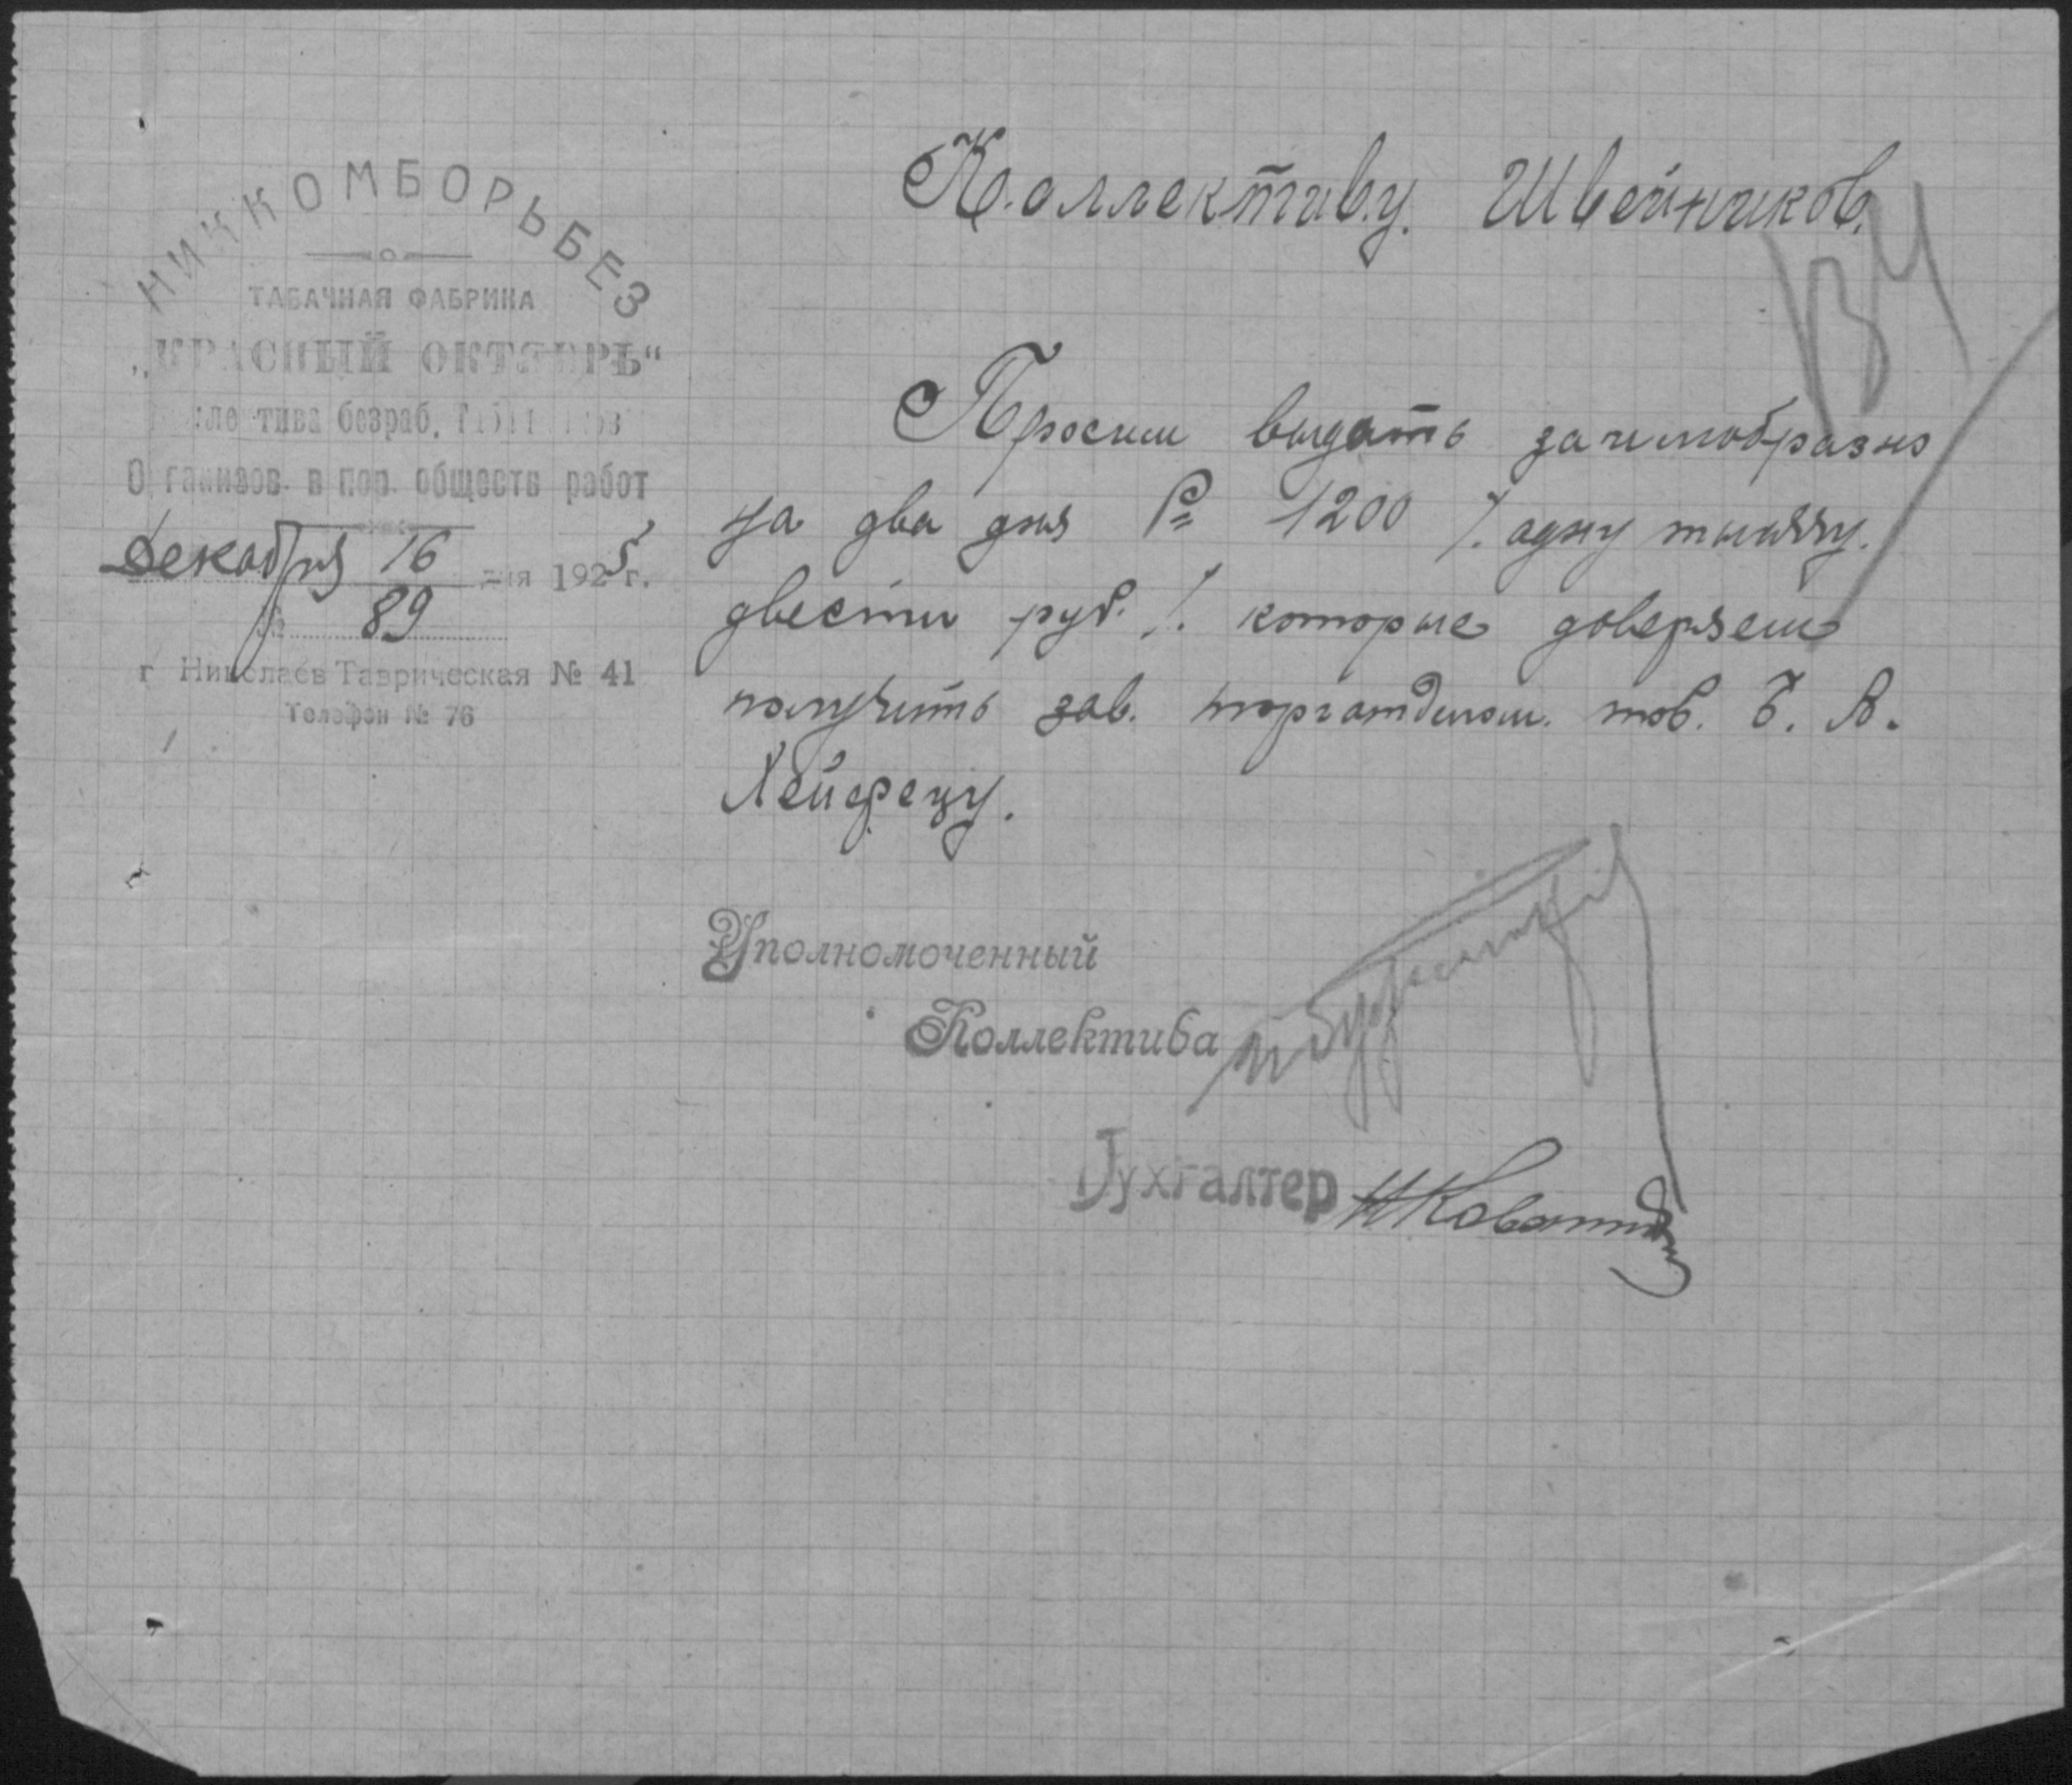 НИККОМБОРЬБЕЗ
ТАБАЧНАЯ ФАБРИКА
„КРАСНЫЙ ОКТЯБРЬ“
тива безраб.
Организов. в пор. обществ работ
Декабря 16 дня 1925 г.
№ 89
г Николаев Таврическая № 41
Телефон № 76
Коллективу. Швейников.
Просим выдать заимообразно
на два дня Р= 1200 /. одну тысячу.
двести руб. /. которые доверяем
получить зав. торготделом. тов. Б. А.
Хейфецу.
Уполномоченный
Коллектива
Бухгалтер